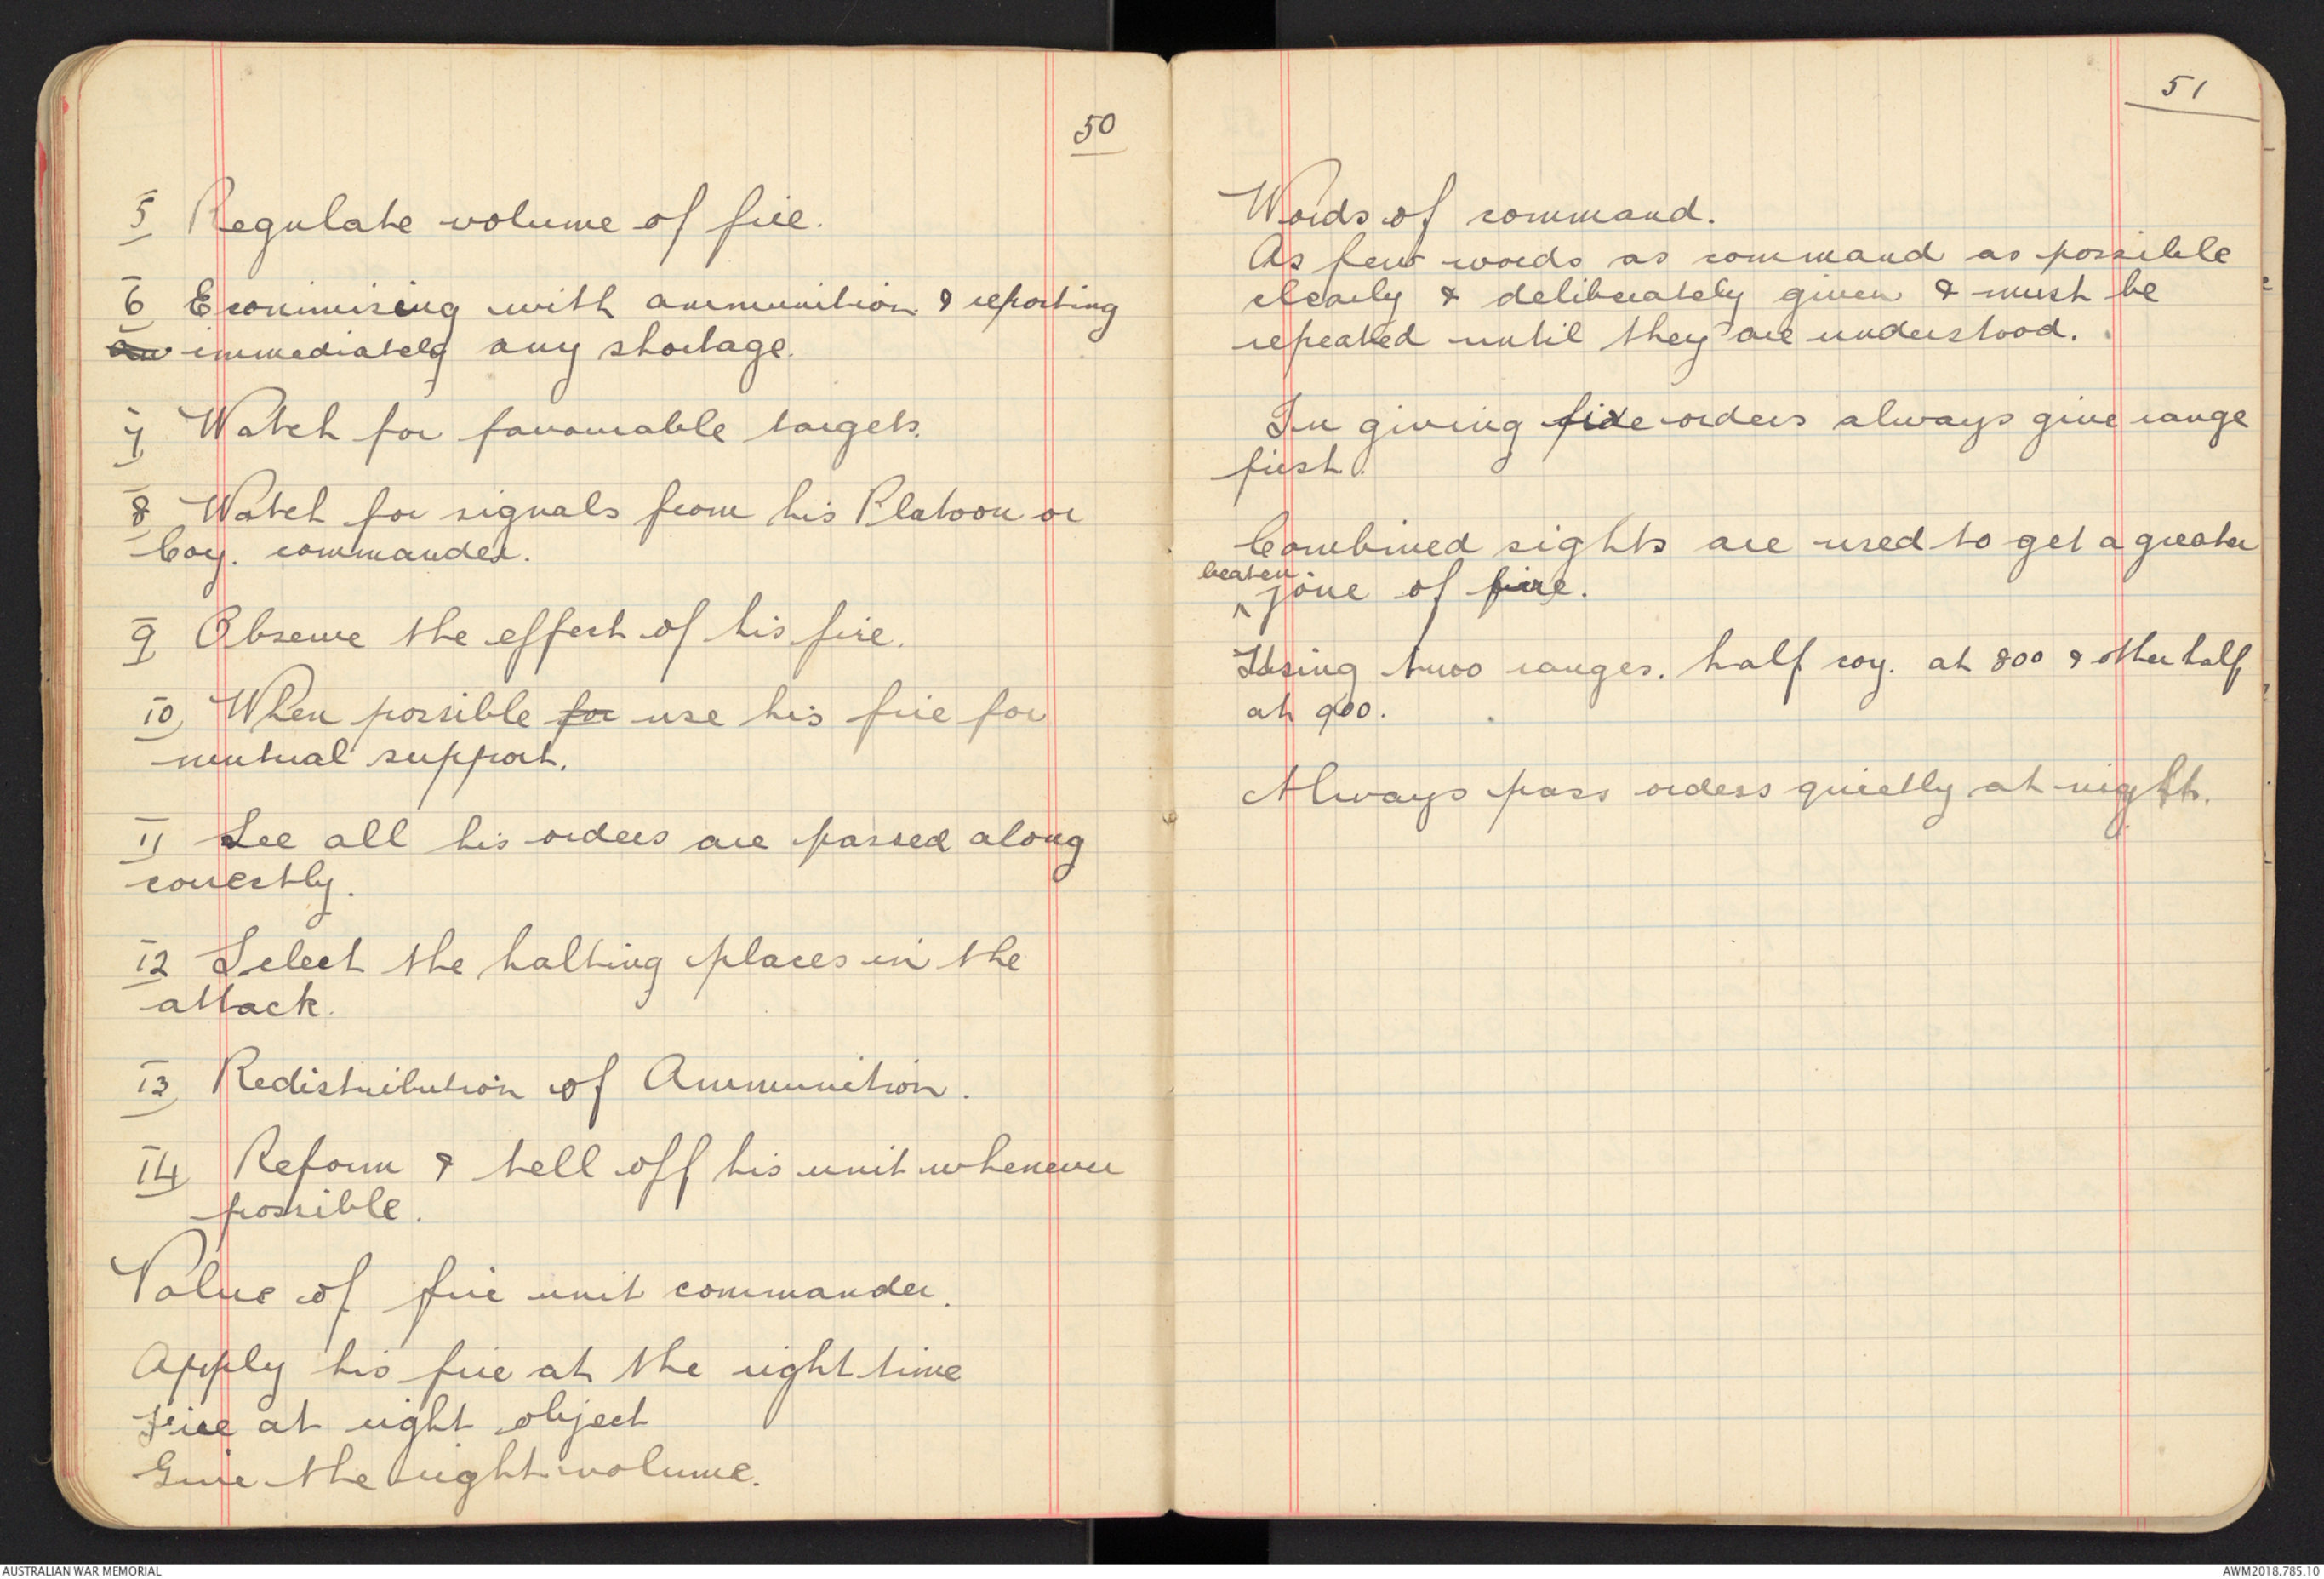 50
5 Regulate volume of fire.
6 Econimising with ammunition & reporting
an immediately any shortage.
7 Watch for favourable targets.
8 Watch for signals from his Platoon or
Coy. commander.
9 Observe the effect of his fire.
10 When possible for use his fire for
mutual support.
11 See all his orders are passed along
correctly.
12 Select the halting places in the
attack.
13 Redistribution of Ammunition.
14 Reform & tell off his unit whenever
possible.
Value of fire unit commander.
Apply his fire at the right time
Fire at right object
Give the right volume.
51
Words of command.
As few words as command as possible
clearly & deliberately given & must be
repeated until they are understood.
In giving fire orders always give range
first.
Combined sights are used to get a greater
beaten
^ zone of fire.
Using two ranges. half coy. at 800 & other half
at 900.
Always pass orders quietly at night.
AUSTRALIAN WAR MEMORIAL
AWM2018.785.10